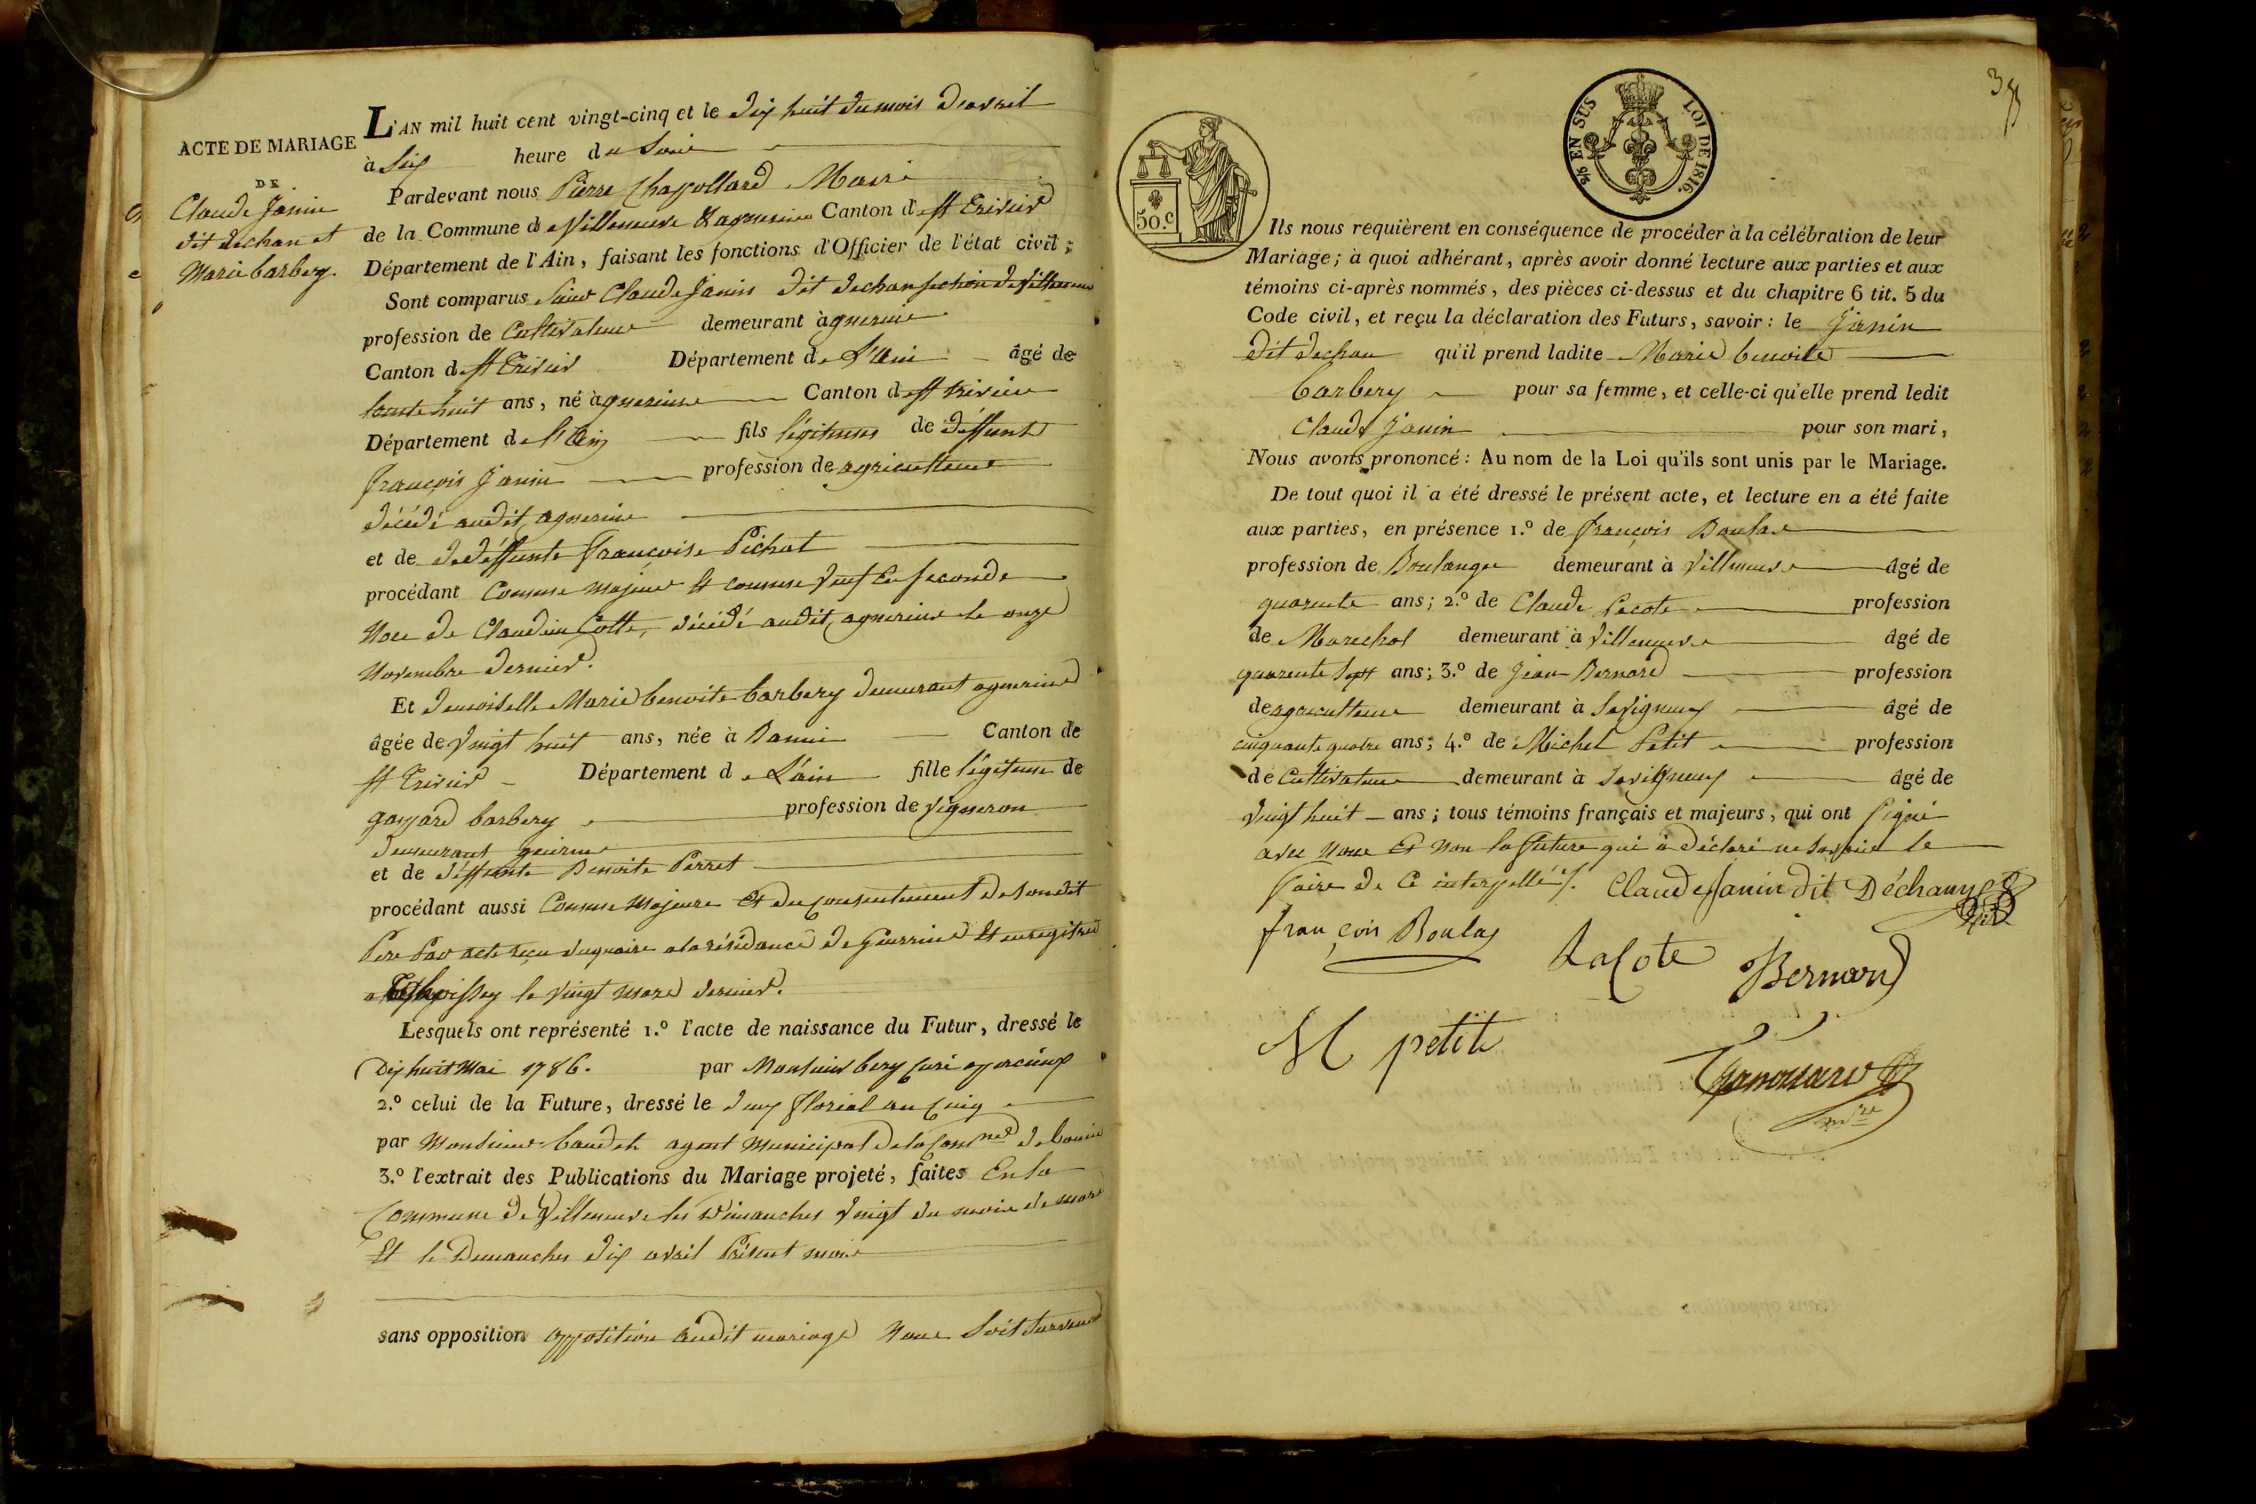 ACTE DE MARIAGE
DE
Claude Janin
dit dechan et
Marie barbery.
L'AN mil huit cent vingt-cinq et le dix huit du mois d'avril
à Six heure du Soir
Pardevant nous Pierre Chapollard Maire
de la Commune de Villeneuve & agnereins Canton de St Trivier
Département de l'Ain, faisant les fonctions d'Officier de l'état civil;
Sont comparus Sieur Claude Janin dit dechan section de Villeneuve
profession de Cultivateur demeurant à agnerine
Canton de St Trivier Département de L'Ain âgé de
trente huit ans, né à agnerine Canton de St trivier
Département de l'Ain fils légitime de deffunt
françois Janin profession de agriculteur
décédé audit agnerine
et de de deffunte françoise Pichat
procédant Comme majeur et comme veuf en seconde
Noce de Claudine Cotte, décédé audit agnerine le onze
Novembre dernier.
Et demoiselle Marie benoite barbery demeurant agnerine
âgée de vingt huit ans, née à Banin Canton de
St Trivier Département de L'ain fille légitime de
gaspard barbery profession de vigneron
demeurant
et de deffunte Benoite Perret
procédant aussi Comme Majeure et du consentement de son dit
Pere Par acte reçu à la résidance de et enregistré
a Thoissey le vingt mars dernier.
Lesquels ont représenté 1.° l'acte de naissance du Futur, dressé le
Dix huit Mai 1786. par Monsieur bery Curé
2.° celui de la Future, dressé le deux florial an Cinq
par Monsieur baudet agent municipal de la Comne de banin
3.° l'extrait des Publications du Mariage projeté, faites En la
Commune de Villeneuve les Dimanches vingt du mois de mars
Et le Dimanches dix avril Présent mois
sans opposition opposition audit mariage Nous Soit survenue
3
50.C
EN SUS
LOI DE 1816.
Ils nous requièrent en conséquence de procéder à la célébration de leur
Mariage; à quoi adhérant, après avoir donné lecture aux parties et aux
témoins ci-après nommés, des pièces ci-dessus et du chapitre 6 tit. 5 du
Code civil, et reçu la déclaration des Futurs, savoir: le Janin
dit dechan qu'il prend ladite Marie benoite
barbery pour sa femme, et celle-ci qu'elle prend ledit
Claude Janin pour son mari,
Nous avons prononcé: Au nom de la Loi qu'ils sont unis par le Mariage.
De tout quoi il a été dressé le présent acte, et lecture en a été faite
aux parties, en présence 1.° de françois Boulas
profession de Boulanger demeurant à Villeneuve âgé de
quarente ans; 2.° de Claude Lacote profession
de Marechal demeurant à Villeneuve âgé de
quarente Sept ans; 3.° de Jean Bernard profession
de agriculteur demeurant à Savigneux âgé de
cinquante quatre ans; 4.° de Michel Petit profession
de Cultivateur demeurant à Savigneux âgé de
vingt huit ans; tous témoins français et majeurs, qui ont Signé
avec Nous Et Non la future qui a déclaré ne Savoir le
faire de Ce interpellé./. Claude Janin dit Déchany
françois Boulas LaCote Bernard
M petit
Chapollard
mire